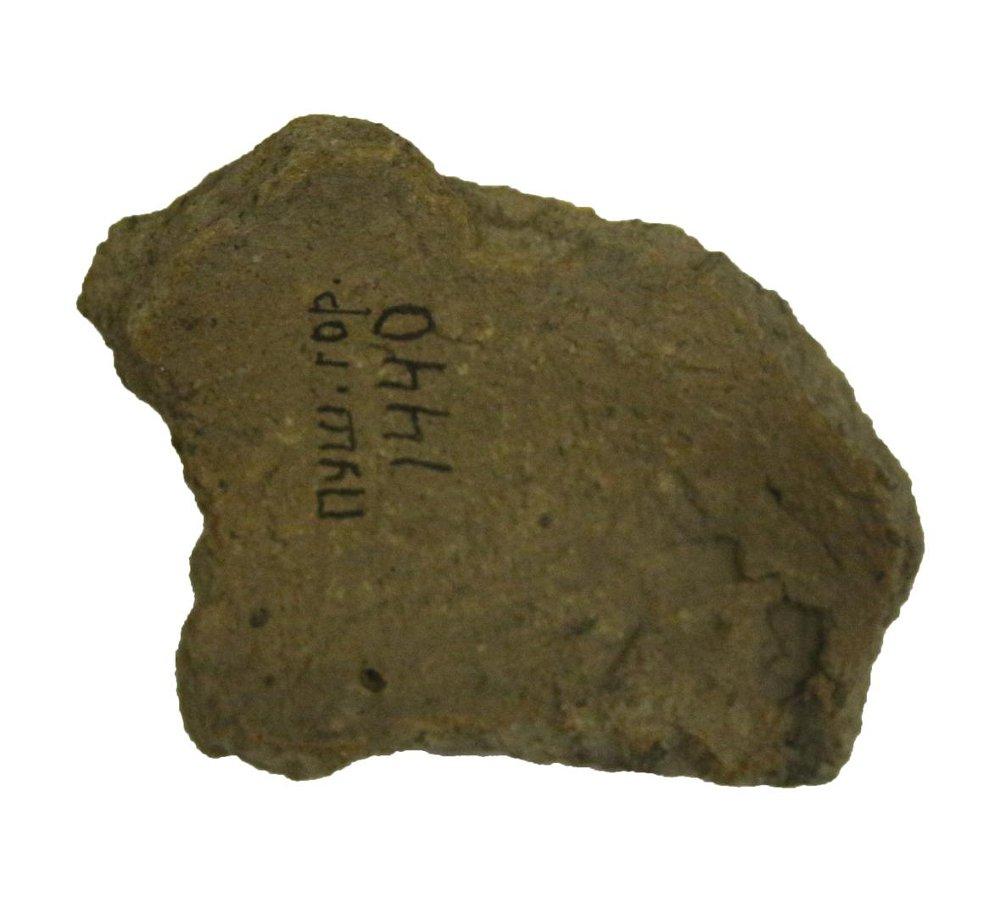 пуш.гор.
1440